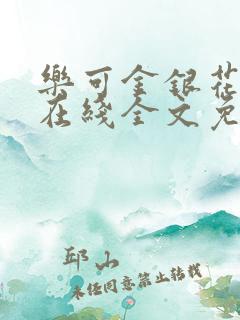 樂可金銀花
在綫全文免
邱山
未经同意禁止转载